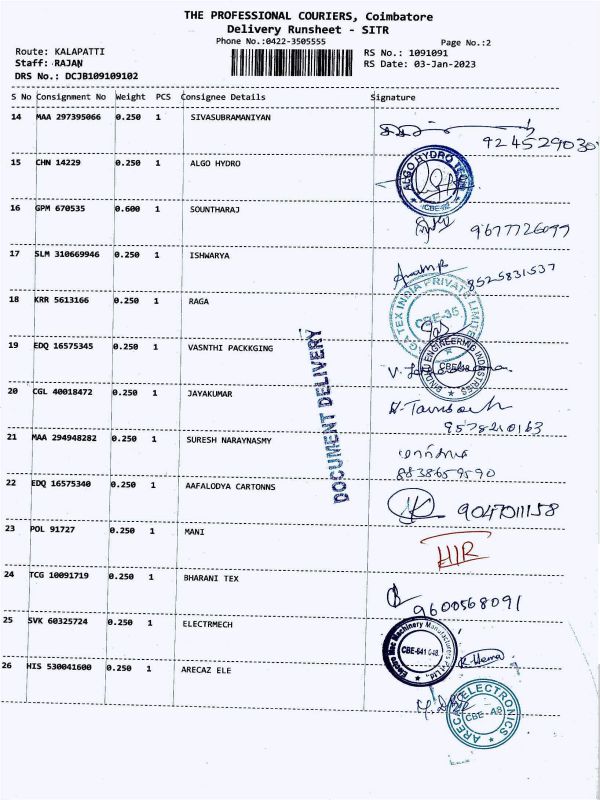 THE PROFESSIONAL COURIERS, Coimbatore
Delivery Runsheet - SITR
Phone No.:0422-3505555
Page No.:2
Route: KALAPATTI
RS No.: 1091091
Staff: RAJAN
RS Date: 03-Jan-2023
DRS No.: DCJB109109102
S No Consignment No Weight PCS Consignee Details Signature
14 MAA 297395066 0.250 1 SIVASUBRAMANIYAN
924529030
15 CHN 14229 0.250 1 ALGO HYDRO
ALGO HYDRO TECH
16 GPM 670535 0.600 1 SOUNTHARAJ
9677726097
17 SLM 310669946 0.250 1 ISHWARYA
8525831537
18 KRR 5613166 0.250 1 RAGA
GA TEX INDIA PRIVATE LIMITE
CBE-35
19 EDQ 16575345 0.250 1 VASNTHI PACKKGING
ENGINEERING INDUSTRIES
20 CGL 40018472 0.250 1 JAYAKUMAR
9578210163
21 MAA 294948282 0.250 1 SURESH NARAYNASMY
8838659590
22 EDQ 16575340 0.250 1 AAFALODYA CARTONNS
9047011158
23 POL 91727 0.250 1 MANI
24 TCG 10091719 0.250 1 BHARANI TEX
9600568091
25 SVK 60325724 0.250 1 ELECTRMECH
Machinery Manufacturers Pvt.Ltd.
CBE-641 048
R.Hema
26 HIS 530041600 0.250 1 ARECAZ ELE
ARECA ELECTRONICS
CBE-48
DOCUMENT DELIVERY